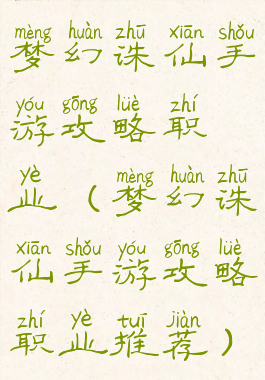 mèng huàn zhū xiān shǒu
梦幻诛仙手
yóu gōng lüè zhí
游攻略职
yè mèng huàn zhū
业（梦幻诛
xiān shǒu yóu gōng lüè
仙手游攻略
zhí yè tuī jiàn
职业推荐）